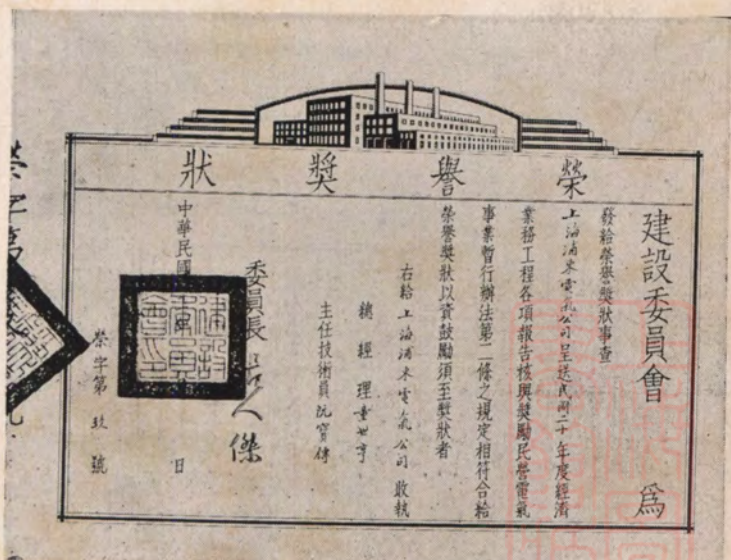 榮譽獎狀
建設委員會 爲
發給榮譽獎狀事查
上海浦東電氣公司呈送民國二十年度經濟
業務工程各項報告核與獎勵民營電氣
事業暫行辦法第二條之規定相符合給
榮譽獎狀以資鼓勵須至獎狀者
右給上海浦東電氣公司收執
總經理童世亨
主任技術員阮寶傳
委員長 人傑
中華民國
日
榮字第玖號
榮字第